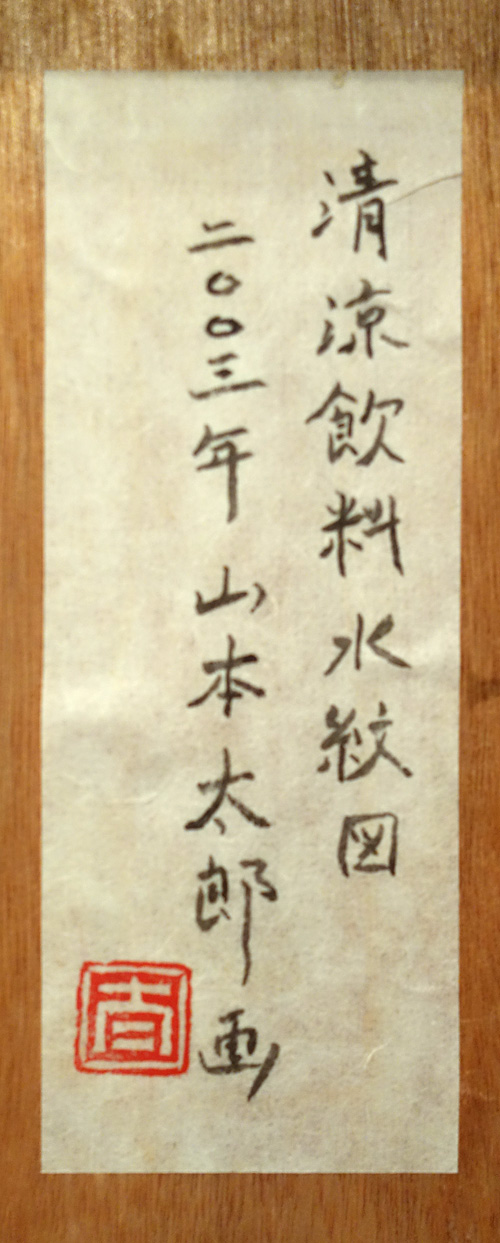 清涼飲料水紋図
二〇〇三年 山本太郎画